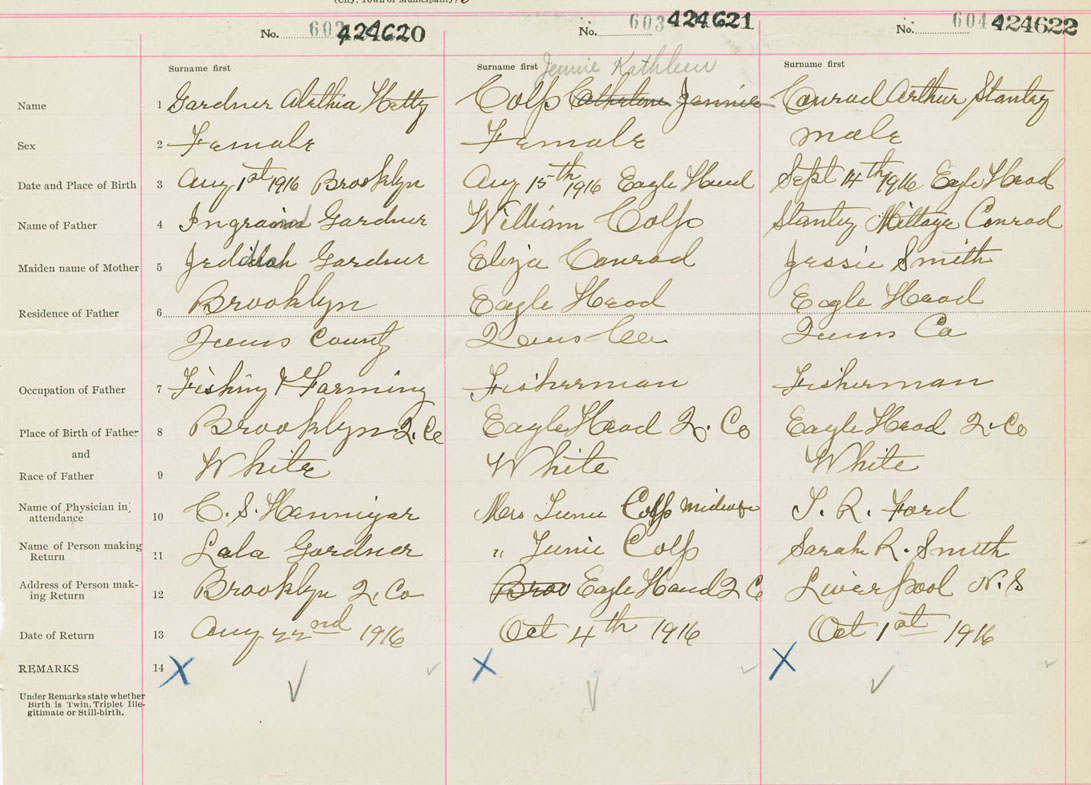 (City, Town or Municipality)
No. 602 424620 No. 603 424621 No. 604 424622
Surname first Surname first Jennie Kathleen Surname first
Name 1 Gardner Alethia Hetty Colp Jennie Conrad Arthur Stanley
Sex 2 Female Female male
Date and Place of Birth 3 Aug 1st 1916 Brooklyn Aug 15th 1916 Eagle Head Sept 14th 1916 Eagle Head
Name of Father 4 Gardner William Colp Stanley Conrad
Maiden name of Mother 5 Gardner Eliza Conrad Jessie Smith
Residence of Father 6 Brooklyn Eagle Head Eagle Head
Queens County Queens Co Queens Co
Occupation of Father 7 Fishing & Farming Fisherman Fisherman
Place of Birth of Father 8 Brooklyn Q. Co Eagle Head Q. Co Eagle Head Q. Co
and
Race of Father 9 White White White
Name of Physician in attendance 10 C. S. Hennigar Mrs Colp Midwife J. R. Ford
Name of Person making Return 11 Lala Gardner " Colp Sarah R. Smith
Address of Person making Return 12 Brooklyn Q. Co Eagle Head Q Co Liverpool N.S
Date of Return 13 Aug 22nd 1916 Oct 4th 1916 Oct 1st 1916
REMARKS 14 X X X
Under Remarks state whether
Birth is Twin, Triplet Ille-
gitimate or Still-birth.